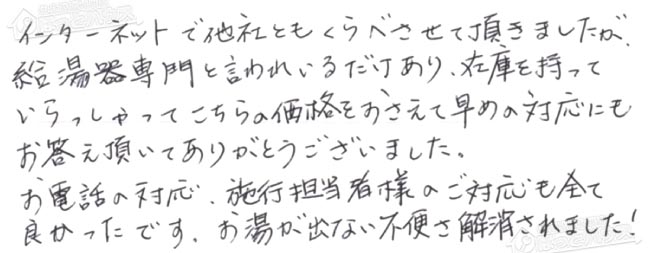 インターネットで他社ともくらべさせて頂きましたが、
給湯器専門と言われいるだけあり、在庫を持って
いらっしゃってこちらの価格をおさえて早めの対応にも
お答え頂いてありがとうございました。
お電話の対応、施行担当者様のご対応も全て
良かったです。お湯が出ない不便さ解消されました!